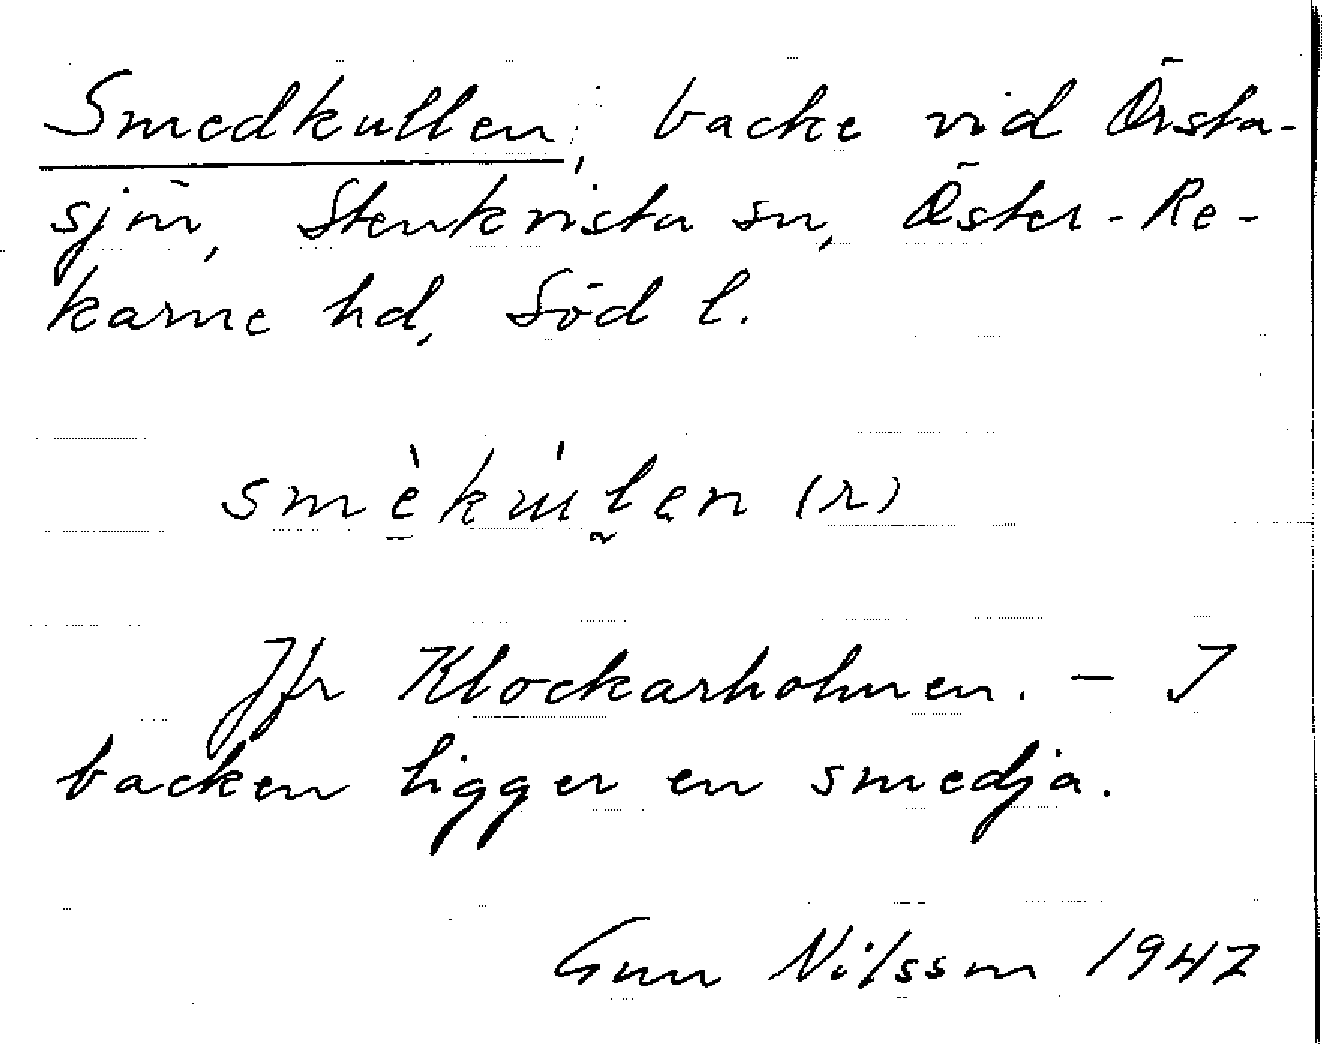 Smedkullen, backe vid Örsta-
sjön, Stenkvista sn, Öster-Re-
karne hd, Söd l.
smèkúlen (r)
Jfr Klockarholmen. - I
backen ligger en smedja.
Gun Nilsson 1947